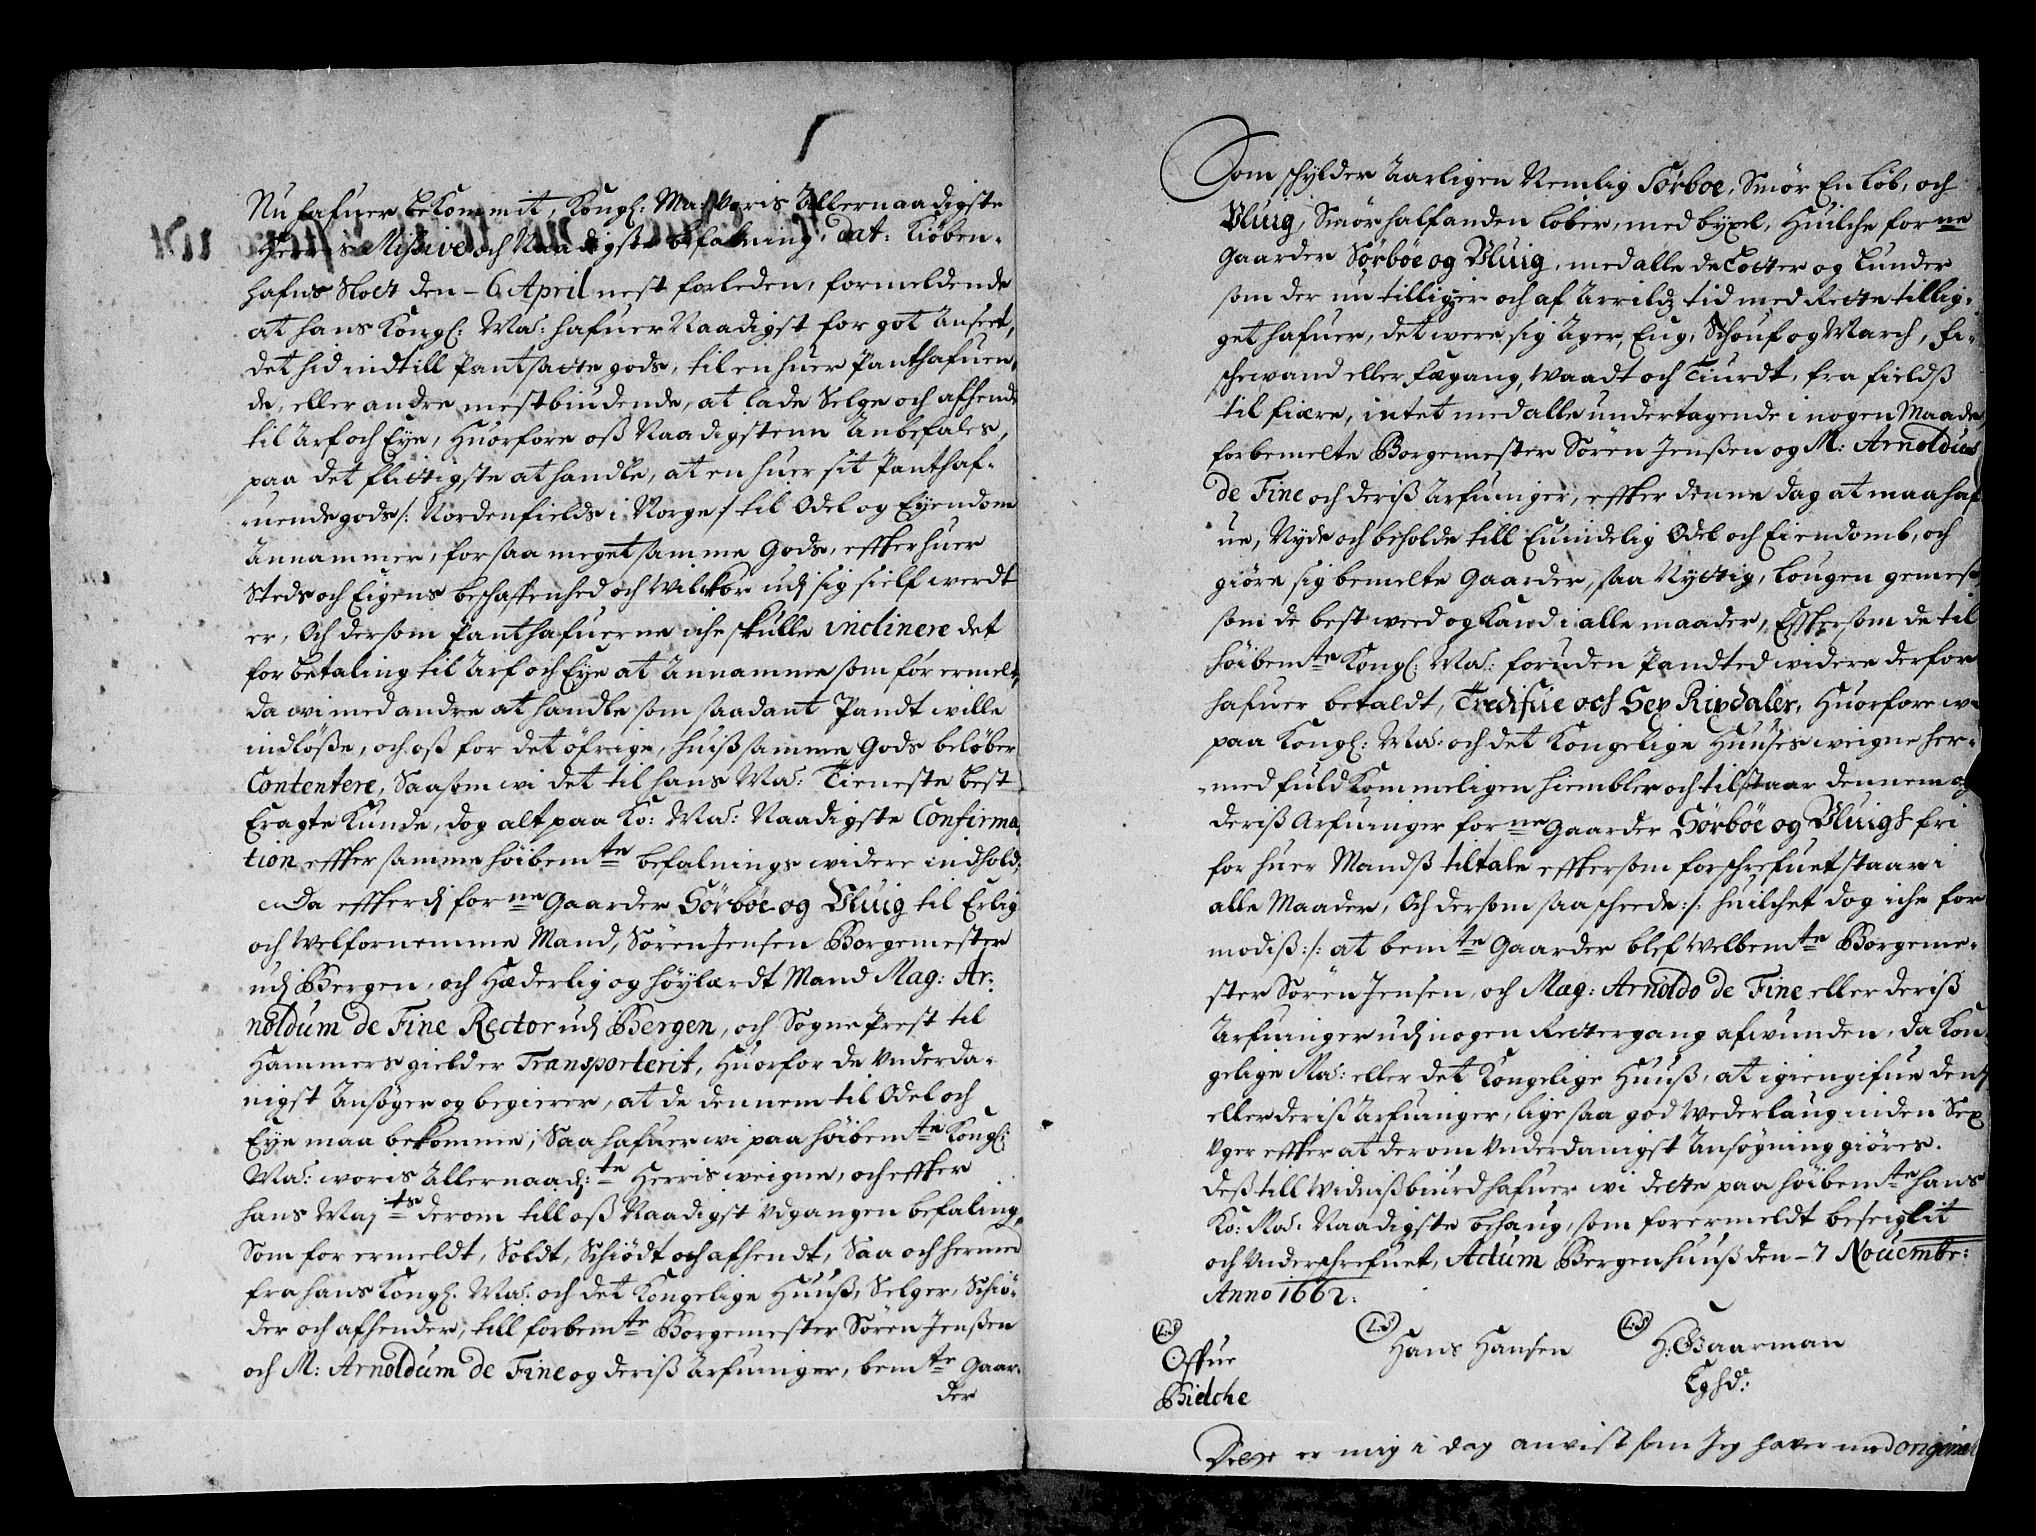 Nu hafuer bekommit, Kongl: Ma: Voris Allernaadigste
Herris Missive och Naadigste befalning, dat: Kiöben-
hafns Slott den - 6 April nest forleden, formeldende
at hans Kongl: Ma: hafuer Naadigst for got anseet,
det hid indtill Pantsatte gods, til en huer Panthafuen-
de, eller andre mestbiudende, at lade Selge och afhende
til Arf och Eye, Huorfore oß Naadigstenn Anbefales,
paa det flittigste at handle, at en huer sit Panthaf-
uende gods /: Nordenfields i Norge :/ til Odel og Eyendom
Annammer, for saa meget samme Gods, effter huer
Steds och Eigens beschaffenhed och Wilckor udj sig sielf werdt
er, Och dersom Panthafuerne iche skulle inclinere det
for betaling til Arf och Eye at Annamme som för ermelt,
da wi med andre at handle som saadant Pandt wille
indlöße, och oß for det öfrige, huiß samme Gods belöber
Contentere, Saasom wi det til hans Ma: Tieneste best
Eragte Kunde, dog alt paa Ko: Ma: Naadigste Confirma-
tion effter samme höibemte befalnings widere indhold;
Da effterdj forne Gaarder Sörböe og Vluig til Erlig
och Welfornemme Mand, Sören Jensen Borgemester
udj Bergen, och Hæderlig og Höylærdt Mand Mag: Ar-
noldum de Fine Rector udj Bergen, och Sogne Prest til
Hammers gield er Transporterit, Huorfor de Vnderda-
nigst Ansöger og begierer, at de dennem til Odel och
Eye maa bekomme, Saa hafuer wi paa höibemte Kongl:
Ma: woris Allernaad:te Herris weigne, och effter
hans Majts derom till oß Naadigst Vdgangen befaling,
Som for ermeldt, Soldt, Schiödt och afhendt, Saa och hermed
fra hans Kongl. Ma: och det Kongelige Huuß, Selger, Schiö-
der och afhender, till forbemte Borgemester Sören Jenßen
och M: Arnoldum de Fine og deriß Arfuinger, bemte Gaar-
der
Som schylder Aarligen Nemlig Sörboe, Smör En löb, och
Vluig, Smör halfanden löber, med byxel, Huilche forne
Gaarder Sörböe og Vluig, med alle de Lotter og Lunder
som der nu tilligger och af Arrildz tid med Rette tillig-
get hafuer, det were sig Ager, Eng, Schouf og March, Fi-
schewand eller Fægang, Waadt och Tiurdt, fra fieldß
til fiære, intet med alle undertagende i nogen Maade,
forbemelte Borgemester Sören Jenßen og M: Arnoldus
de Fine och deriß Arfuinger, effter denne dag at maa haf-
ue, Nyde och beholde till Euindelig Odel och Eiendomb, och
giöre sig bemelte Gaarder, saa Nyttig, Lougen gemeß
som de best weed og Kand i alle maader, Efftersom de til
höibemte Kongl: Ma: foruden Pandted widere derfor
hafuer betaldt, Tredifue och Sex Rixdaler, Huorfore wi
paa Kongl: Ma: och det Kongelige Huuses weigne her-
med fuldkommeligen hiembler och tilstaar dennem og
deriß Arfuinger forne Gaarder Sörböe og Vluigs fri
for huer Mandß tiltale efftersom forschrefuet staar i
alle Maader, Och dersom saa scheede :/: huilchet dog iche for-
modiß :/: at bemte Gaarder blef Welbemte Borgeme-
ster Sören Jensen, och Mag: Arnoldo de Fine eller deriß
Arfuinger udj nogen Rettergang afwunden, da Kon-
gelige Ma: eller det Kongelige Huuß, at igiengifue dem
eller deriß Arfuinger, lige saa god Wederlaug inden Sex
Vger effter at derom Vnderdanigst Ansögning giöres.
Deß till Widnißbiurd hafuer wi dette paa höibemte hans
Ko: Ma: Naadigste behaug, som forermeldt beseiglit
och Vnderschrefuet, Actum Bergenhuuß den - 7 Nouembr:
Anno 1662.
L.S. L.S. L.S.
Offue Hans Hansen H: Baarman
Bielche Eghd:
Dette er mig i dag anvist som Jeg haver med original